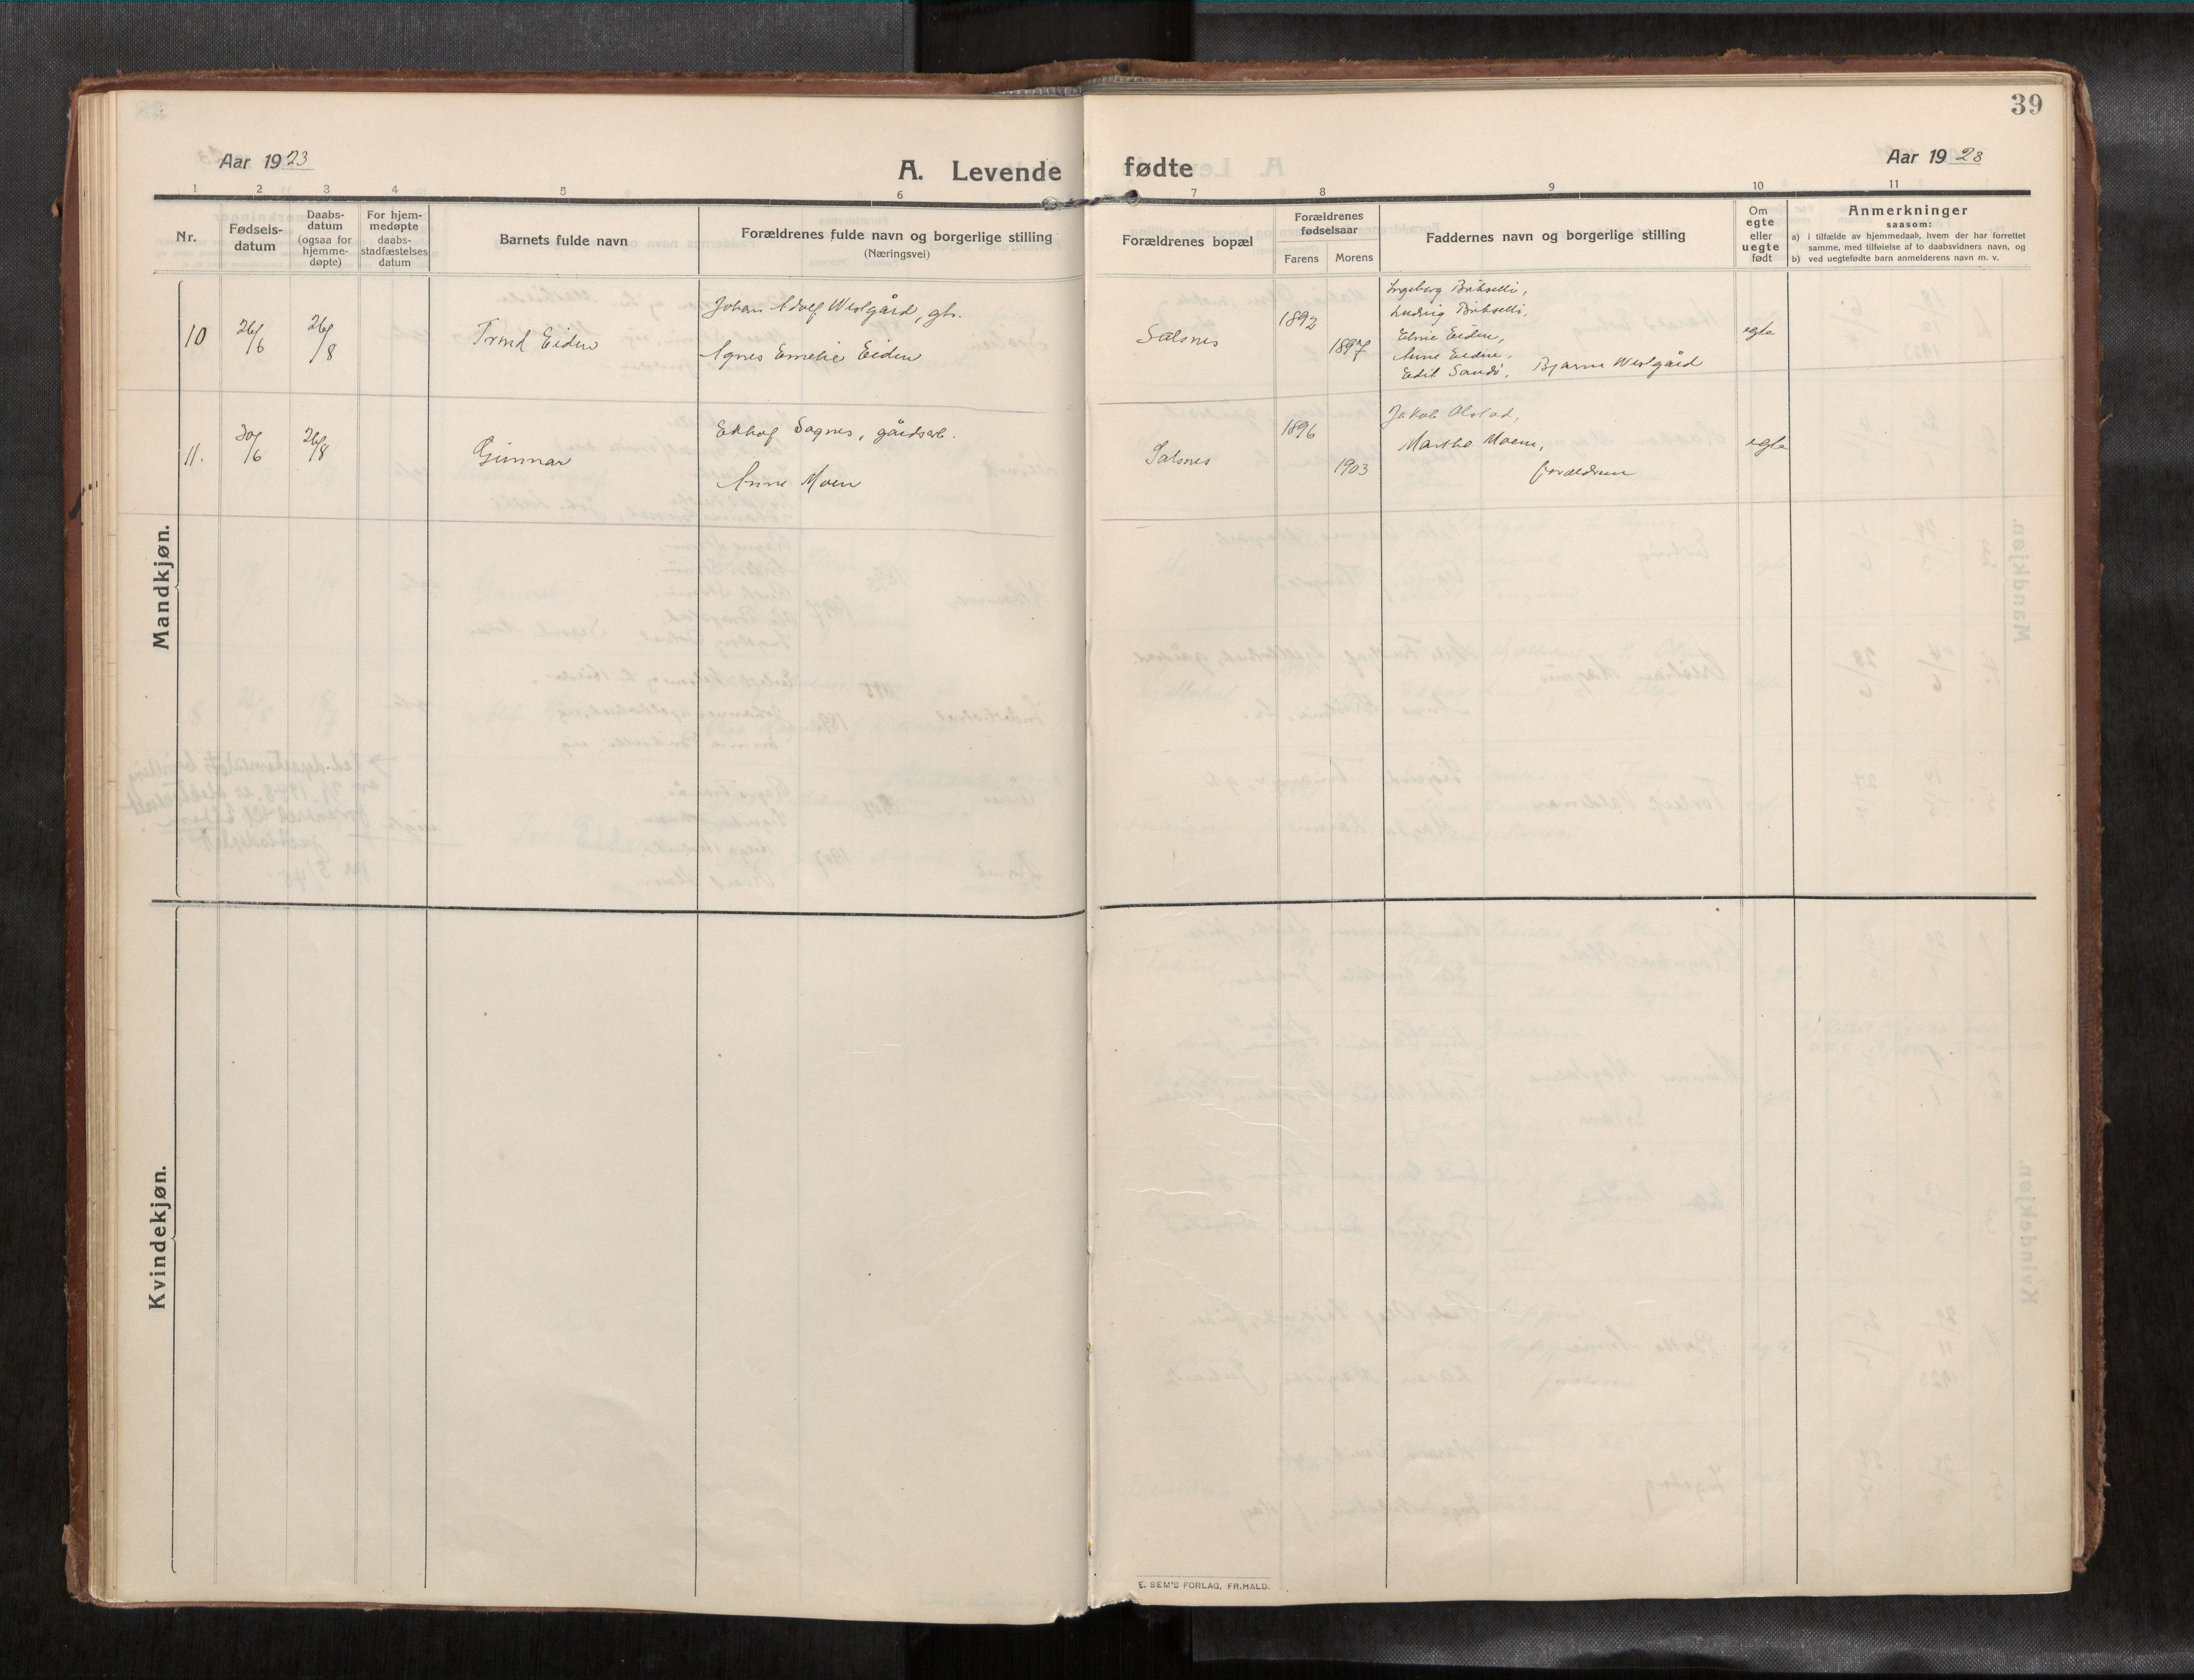 39
Aar 1923
A. Levende fødte
Aar 1923
1 2 3 4 5 6 7 8 9 10 11
Nr.
Fødsels-
datum
Daabs-
datum
(ogsaa for
hjemme-
døpte)
For hjem-
medøpte
daabs-
stadfæstelses
datum
Barnets fulde navn
Forældrenes fulde navn og borgerlige stilling
(Næringsvei)
Forældrenes bopæl
Forældrenes
fødselsaar
Farens Morens
Faddernes navn og borgerlige stilling
Om
egte
eller
uegte
født
Anmerkninger
saasom:
a) i tilfælde av hjemmedaab, hvem der har forrettet
samme, med tilføielse af to daabsvidners navn, og
b) ved uegtefødte barn anmelderens navn m. v.
Mandkjøn.
10
26/6
26/8
Trond Eiden
Johan Adolf Westgård, gbr.
Agnes Emelie Eiden
Salsnes
1892
1897
Ingeborg
Ludvig
Eline Eiden,
Anne Eidene,
Edit Sandø, Bjarne Westgård
egte
11.
30/6
26/8
Gunnar
Sagnes, gårdsarb.
Anne Moen
Salsnes
1896
1903
Jakob Olstad,
Martha Moen,
forældrene
egte
Kvindekjøn.
E. SEM'S FORLAG, FR.HALD.